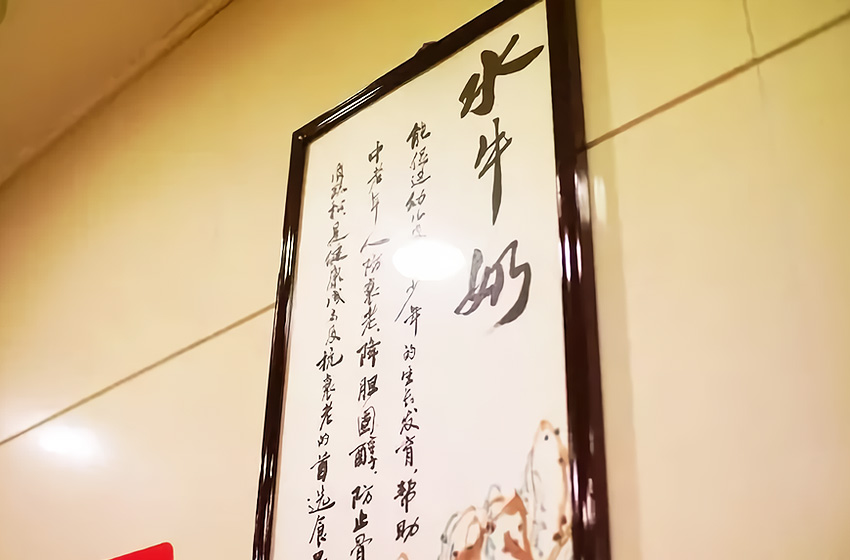 水牛奶
能促进幼儿少年的生长发育,帮助
中老年人防衰老、降胆固醇、防止骨
是健康减反抗衰老的首选食